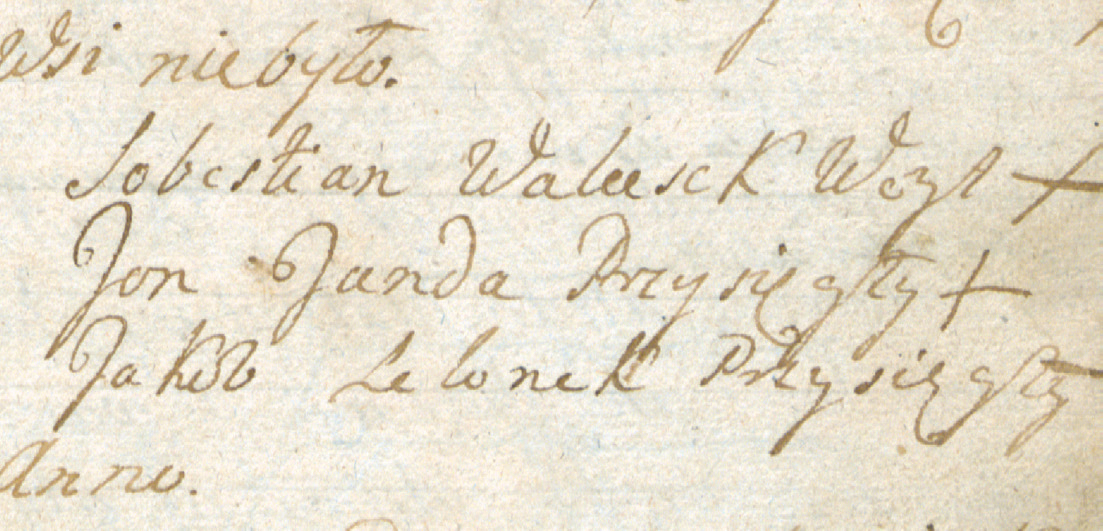 Wsi niebyło.
Sobestian Waleseck Woyt +
Jon Janda Przysięgły +
Jakob Lelonek Przysięgły
Anno.